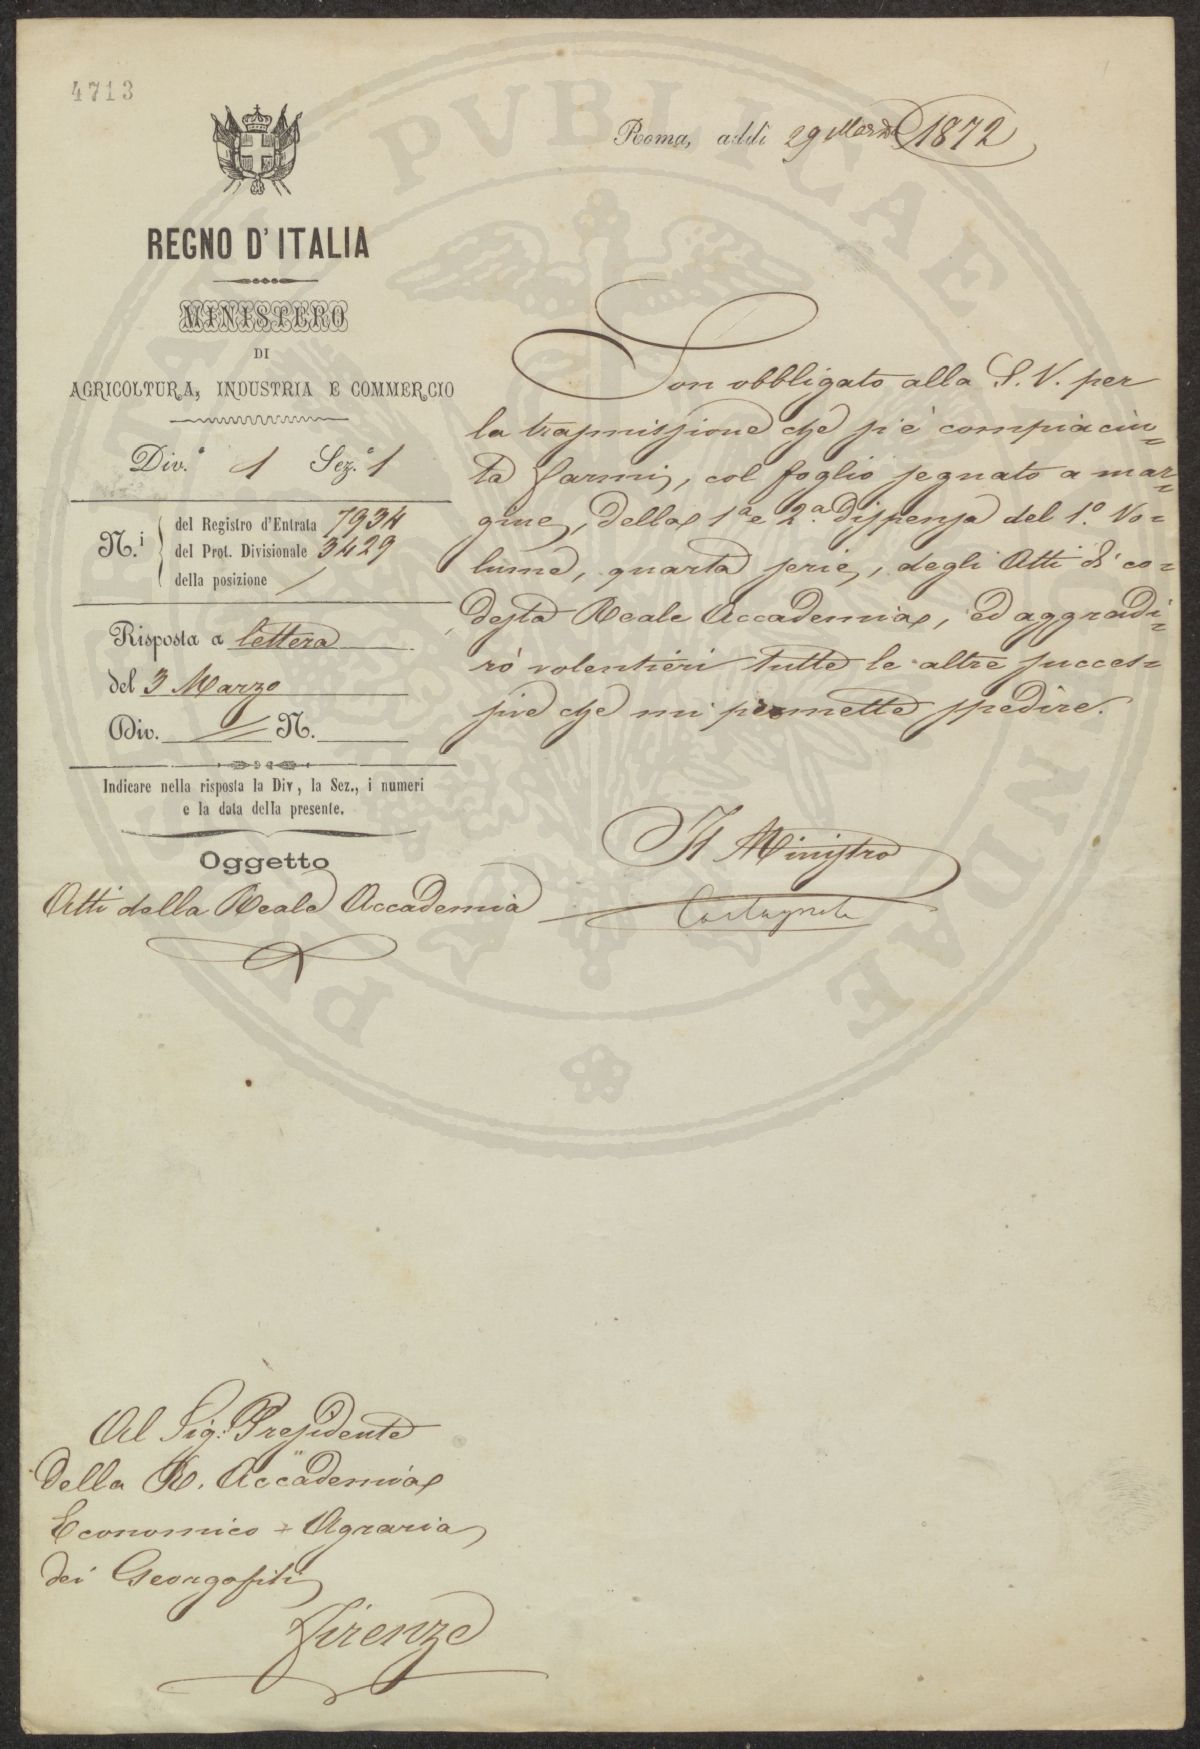 4713
Roma, addì 29 Marzo 1872
REGNO D'ITALIA
MINISTERO
DI
AGRICOLTURA, INDUSTRIA E COMMERCIO
Div.e 1 Sez.e 1
N.i
del Registro d'Entrata 7934
del Prot. Divisionale 3429
della posizione /
Risposta a lettera
del 3 Marzo
Div. // N.
Indicare nella risposta la Div, la Sez., i numeri
e la data della presente.
Oggetto
Atti della Reale Accademia
Son obbligato alla S. V. per
la trasmissione che s'è compiaciu=
ta farmi, col foglio segnato a mar=
gine, della 1a e 2a. Dispensa del 1o. Vo=
lume, quarta serie, degli Atti di co=
desta Reale Accademia, ed aggradi=
rò volentieri tutte le altre succes=
sive che mi permette spedire.
Il Ministro
Castagnola
Al Sig: Presidente
della R. Accademia
Economico = Agraria
dei Georgofili
Firenze
PVBLICAE